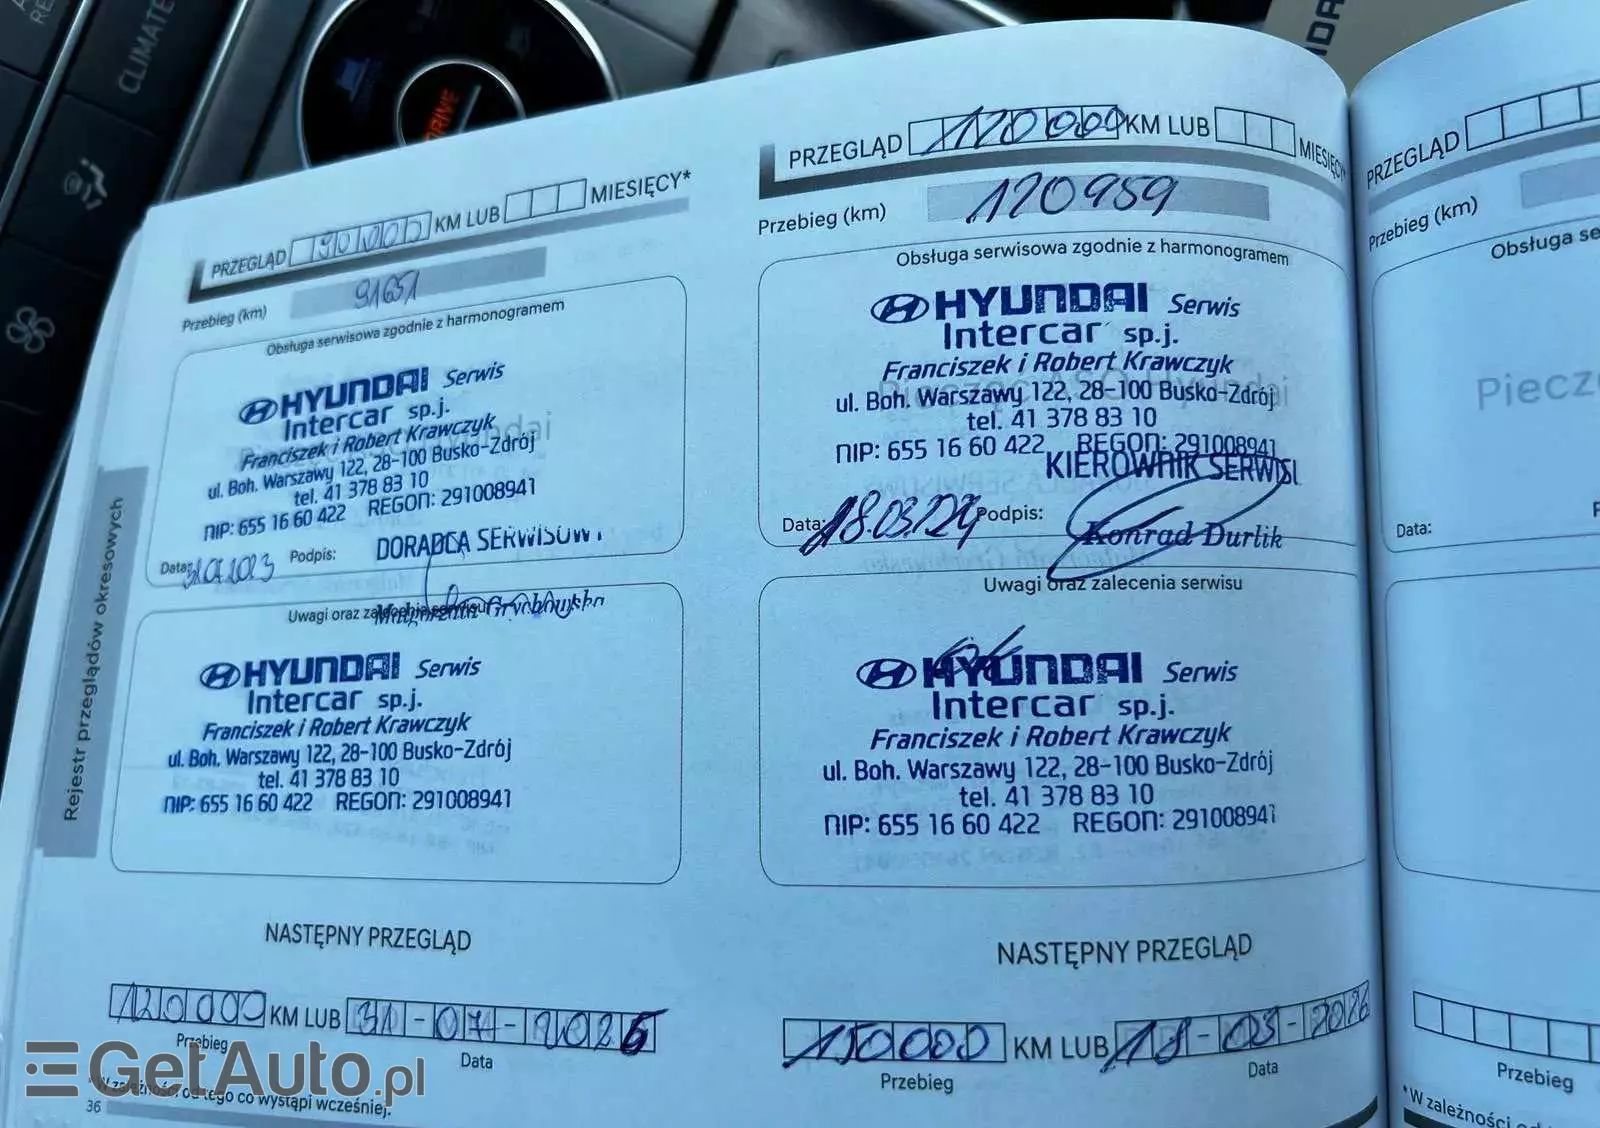 CLIMATE
DRIVE
PRZEGLĄD 90000 KM LUB MIESIĘCY*
Przebieg (km) 91651
Obsługa serwisowa zgodnie z harmonogramem
HYUNDAI Serwis
Intercar sp.j.
Franciszek i Robert Krawczyk
ul. Boh. Warszawy 122, 28-100 Busko-Zdrój
tel. 41 378 83 10
NIP: 655 16 60 422 REGON: 291008941
Data: Podpis: DORADCA SERWISOWY
Uwagi oraz zalecenia serwisu
HYUNDAI Serwis
Intercar sp.j.
Franciszek i Robert Krawczyk
ul. Boh. Warszawy 122, 28-100 Busko-Zdrój
tel. 41 378 83 10
NIP: 655 16 60 422 REGON: 291008941
NASTĘPNY PRZEGLĄD
120000 KM LUB 31-07-2025
Przebieg Data
*W zależności od tego co wystąpi wcześniej.
36
Rejestr przeglądów okresowych
PRZEGLĄD 120000 KM LUB MIESIĘCY*
Przebieg (km) 120959
Obsługa serwisowa zgodnie z harmonogramem
HYUNDAI Serwis
Intercar sp.j.
Franciszek i Robert Krawczyk
ul. Boh. Warszawy 122, 28-100 Busko-Zdrój
tel. 41 378 83 10
NIP: 655 16 60 422 REGON: 291008941
KIEROWNIK SERWISU
Data: 18.03.24 Podpis:
Konrad Durlik
Uwagi oraz zalecenia serwisu
HYUNDAI Serwis
Intercar sp.j.
Franciszek i Robert Krawczyk
ul. Boh. Warszawy 122, 28-100 Busko-Zdrój
tel. 41 378 83 10
NIP: 655 16 60 422 REGON: 291008941
NASTĘPNY PRZEGLĄD
150000 KM LUB 18-03-2026
Przebieg Data
PRZEGLĄD
Przebieg (km)
Obsługa se
Piecz
Data:
Przebieg
*W zależności od
GetAuto.pl